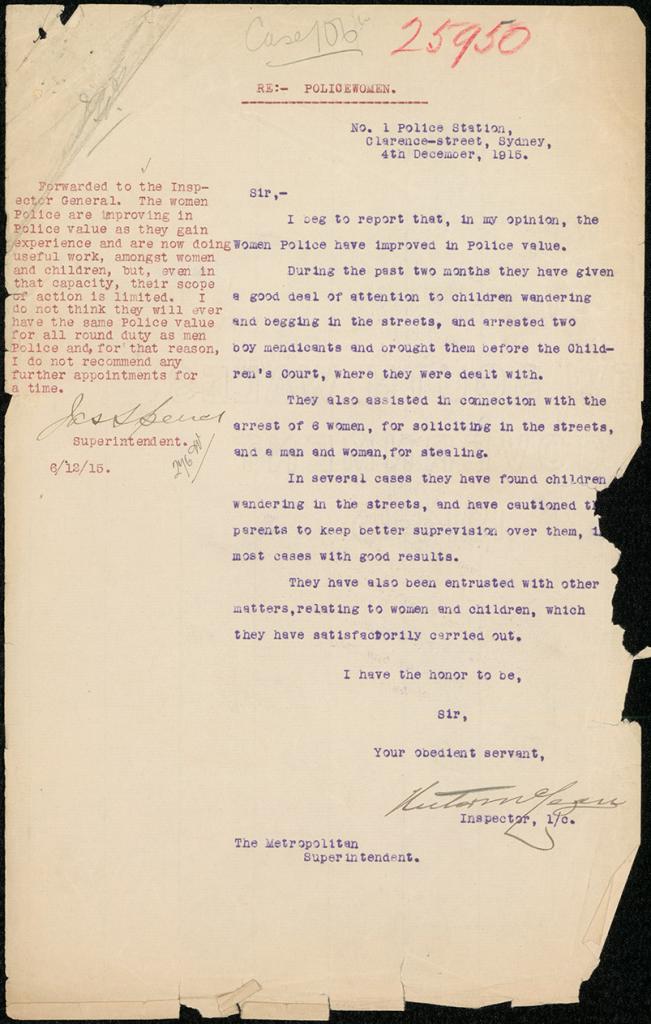 Case 106
25950
RE:- POLICEWOMEN.
No. 1 Police Station,
Clarence-street, Sydney,
4th December, 1915.
Forwarded to the Insp-
ector General. The women
Police are improving in
Police value as they gain
experience and are now doing
useful work, amongst women
and children, but, even in
that capacity, their scope
of action is limited. I
do not think they will ever
have the same Police value
for all round duty as men
Police and, for that reason,
I do not recommend any
further appointments for
a time.
Superintendent.
6/12/15.
Sir,-
I beg to report that, in my opinion, the
Women Police have improved in Police value.
During the past two months they have given
a good deal of attention to children wandering
and begging in the streets, and arrested two
boy mendicants and brought them before the Child-
ren's Court, where they were dealt with.
They also assisted in connection with the
arrest of 6 women, for soliciting in the streets,
and a man and woman, for stealing.
In several cases they have found children
wandering in the streets, and have cautioned th
parents to keep better suprevision over them, i
most cases with good results.
They have also been entrusted with other
matters, relating to women and children, which
they have satisfactorily carried out.
I have the honor to be,
Sir,
Your obedient servant,
Inspector, i/c.
The Metropolitan
Superintendent.